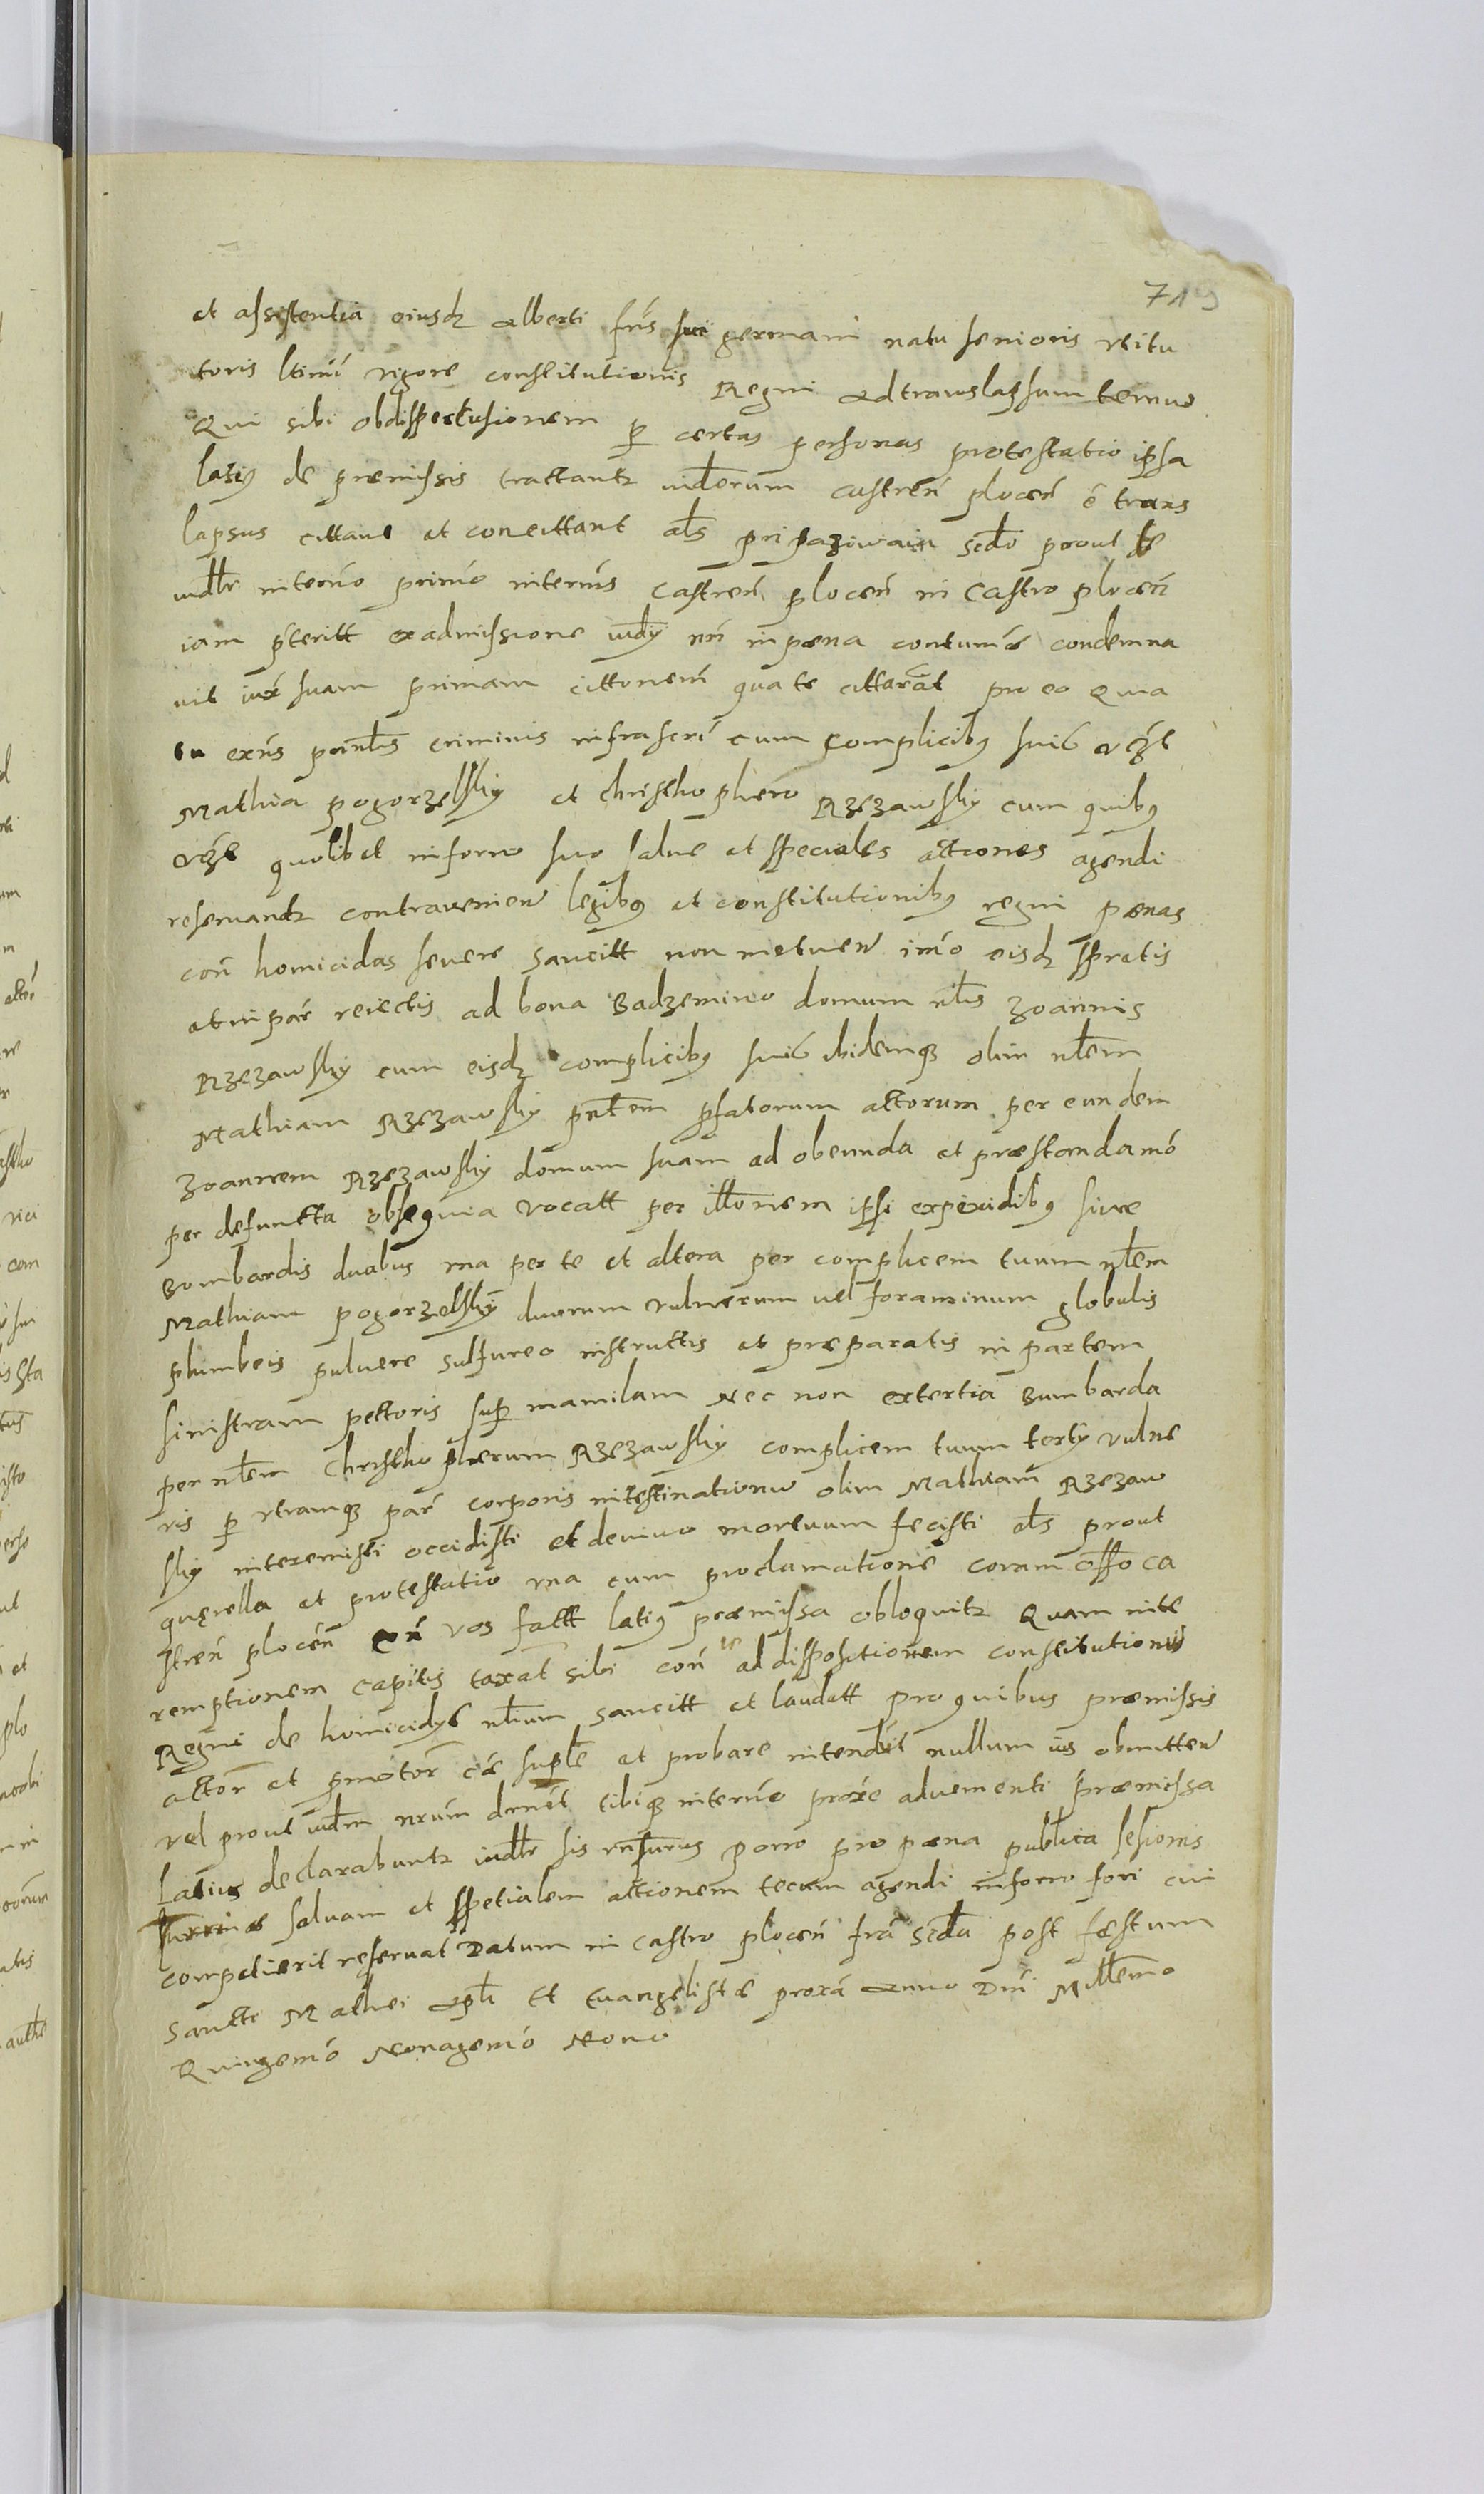 719
et assistentia eiusdz Alberti frīs sui germani natu senioris uti tu
toris ltimi vigore constitutionis Regni ad translapsum termino
Qui sibi ob disperclusionem p certas personas protestatio ipsa
latiꝰ de premissis tractantz iudiciorum castreñ plocēñ e trans
lapsus cittant et concittant als pripazivain scdo prout
iudlr in termo primo in termis castreñ plocēñ in Castro plocēñ
iam pteritt ex admissione iudy nri in pæna contumæ condemna
vit iux suam primam cittonem qua te cittarat pro eo Quia
tu exñs prinlis criminis infrascri cum complicibꝰ suis
Mathia pogorzelskỳ et christhophero Rzezawskỳ cum quibꝰ
quolibet in foro suo saluæ et speciales attiones agendi
reseruantz contravenien legibꝰ et constitutionibꝰ regni pænas
coñ homicidas seuere sancitt non metuen imo eisdz spretis
at in par reiectis ad bona Badzemino domum nlis Joannis
Rzezawskỳ cum eisdz complicibꝰ suis ibidemqz olim nlem
Mathiam Rzezawskỳ pntem pfatorum attorum per eundem
Joannem Rzezawskỳ domum suam ad obeunda et præstanda mo
per defuntta obsequia vocatt per illonem ipsi ex pixidibꝰ siue
Bombardis duabus una per te et altera per complicem tuum nlem
Mathiam pogorzelskỳ duorum vulnerum uel foraminum globulis
plumbeis puluere sulfureo instructis et præparatis in partem
sinistram pettoris sup mamilam Nec non ex tertia Bumbarda
per nlem christhopherum Rzezawskỳ complicem tuum tertỳ vulne
ris p utramqz par corporis intestinationu olim Mathiam Rzezaw
skỳ interemisti occidisti et de viuo mortuum fecisti als prout
quęrella et protestatio una cum proclamatione coram offo ca
streñ plocēñ coñ vos fatt latiꝰ præmissa obloquitz Quam inte
remptionem capitis taxat sibi coñ te ad dispositionem constitutionis
Regni de homicidỳs nlium sancitt et laudatt pro quibus præmissis
attor et pmotor eiæ suple et probare intendūt nullum iis obmitten
vel prout iudm nrum drnēt tibiqz in termo proxe aduenienti præmissa
Latius declarabuntz iudlr sis rnsurus porro pro pæna publica lesionis
saluam et spetialem attionem tecum agendi in foro fori cui
competierit reseruat Datum in castro plocēñ fra scda post festum
Santti Mathei apli Et Euangelistæ proxa Anno Dni Millemo
Quingemo Nonagemo Nono